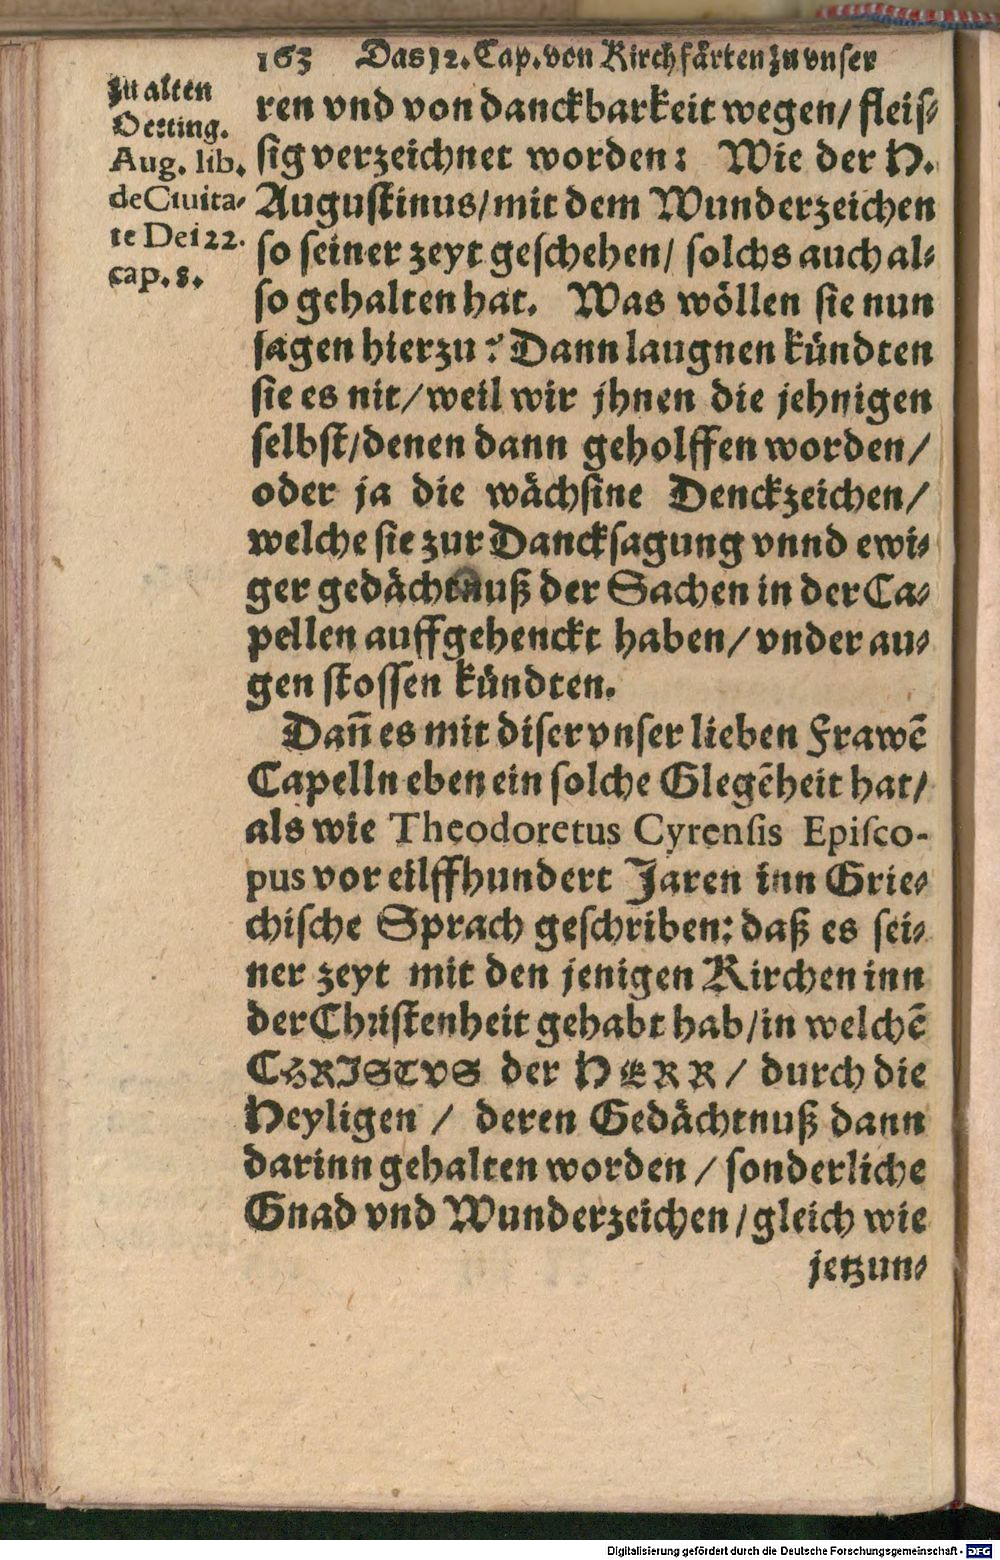 163 Das 12. Cap. von Kirchfärten zu vnser
zu alten
Oetting.
Aug. lib.
de Ciuita-
te Dei 22.
cap. 8.
ren vnd von danckbarkeit wegen/ fleis-
sig verzeichnet worden: Wie der H.
Augustinus/ mit dem Wunderzeichen
so seiner zeyt geschehen/ solchs auch al-
so gehalten hat. Was wöllen sie nun
sagen hierzu? Dann laugnen kündten
sie es nit/ weil wir jhnen die jehnigen
selbst/ denen dann geholffen worden/
oder ja die wächsine Denckzeichen/
welche sie zur Dancksagung vnnd ewi-
ger gedächtnuß der Sachen in der Ca-
pellen auffgehenckt haben/ vnder au-
gen stossen kündten.
Dañ es mit diser vnser lieben Frawẽ
Capelln eben ein solche Glegẽheit hat/
als wie Theodoretus Cyrensis Episco-
pus vor eilffhundert Jaren inn Grie-
chische Sprach geschriben: daß es sei-
ner zeyt mit den jenigen Kirchen inn
der Christenheit gehabt hab/ in welchẽ
CHRISTVS der HERR/ durch die
Heyligen/ deren Gedächtnuß dann
darinn gehalten worden/ sonderliche
Gnad vnd Wunderzeichen/ gleich wie
jetzun-
Digitalisierung gefördert durch die Deutsche Forschungsgemeinschaft - DFG